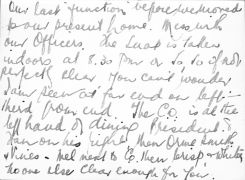 Our last function before we moved
to our present home. Mess with
our Officers. The Snap is taken
indoors at 8.30 P.m or so so if not
perfectly clear you can't wonder
I am seen at far end on left -
third from end. The C.O. is at the
left hand of dining President.
I am on his right then
Hines - next to
no one else clear enough for you.